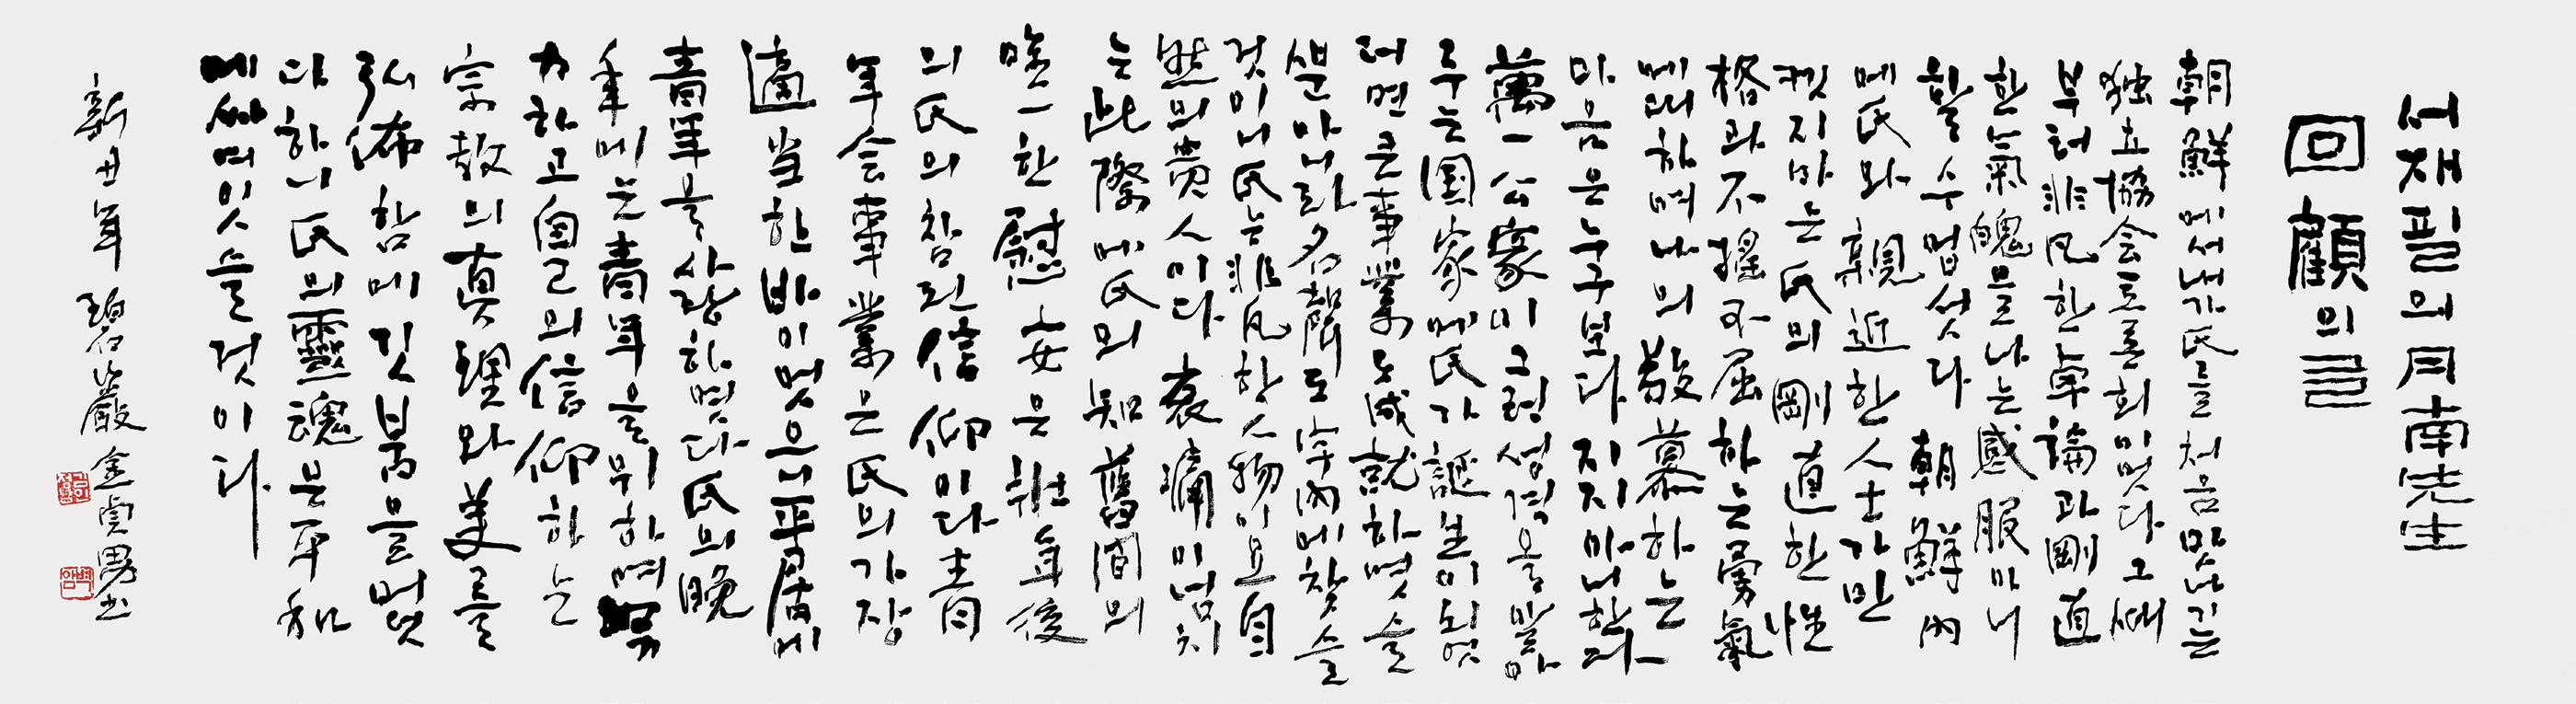 서재필의 月南先生
回顧의 글
朝鮮에서 내가 氏를 처음 맛나기는
独立協会 토론회밋엿다 그때
부터 非凡한 卓論과 剛直
한 氣魄을 나는 感服마니
할수 업섯다 朝鮮內
에 氏와 親近한 人士가 만
켓지마는 氏의 剛直한 性
格과 不撓不屈하는 勇氣
에 대하여 나의 敬慕하는
마음은 누구보다 지지 마니한다
萬一 公家이 그런 성격을 발마
루는 国家에 氏가 誕生이 되엿
더면 큰 事業를 成就하엿슬
뿐마니라 名聲도 宇內에 찻슬
것이니 氏는 非凡한 人物이요 自
然의 貴人이다 哀痛이 넘치
는 此際에 氏의 知舊間의
唯一한 慰安은 壯年後
의 氏의 참된 信仰이다 青
年会事業은 氏의 가장
適当한 바이엿으니 平居에
青年을 사랑하엿다 氏의 晩
年에는 青年을 위하며 努
力하고 自己의 信仰하는
宗敎의 真理와 美를
弘佈함에 깃봄을 엇엇
다 하니 氏의 靈魂은 平和
에 싸여 잇슬 것이다
新丑年 碧巖 金 男 书